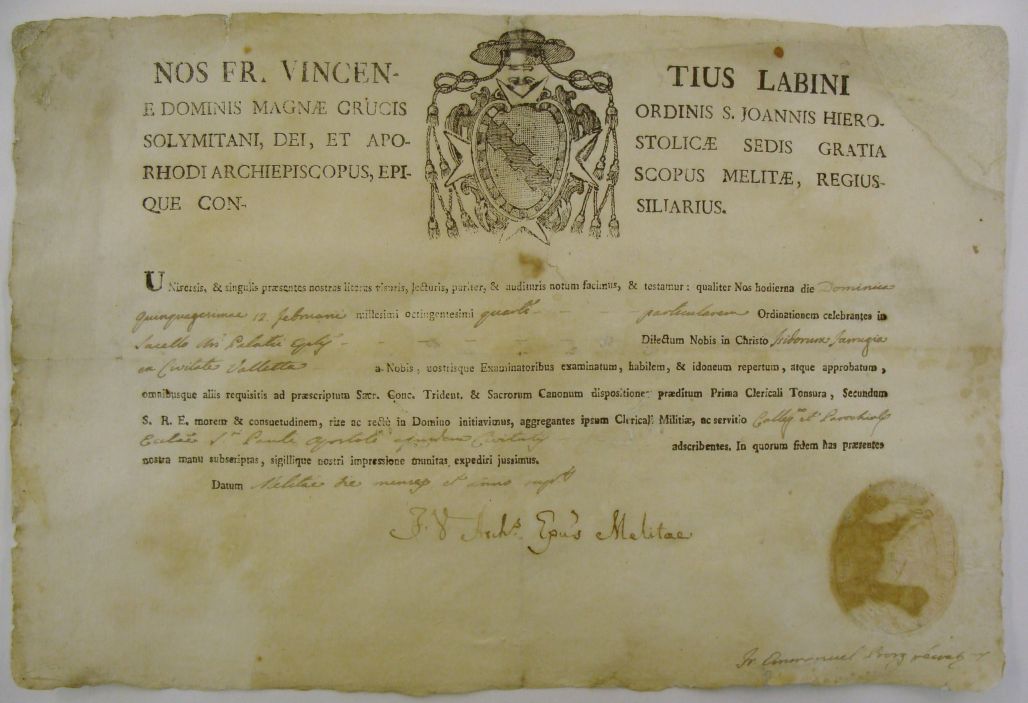 NOS FR. VINCEN- TIUS LABINI
E DOMINIS MAGNÆ CRUCIS ORDINIS S. JOANNIS HIERO-
SOLYMITANI, DEI, ET APO- STOLICÆ SEDIS GRATIA
RHODI ARCHIEPISCOPUS, EPI- SCOPUS MELITÆ, REGIUS-
QUE CON- SILIARIUS.
UNiversis, & singulis præsentes nostras literas visuris, lecturis, pariter, & audituris notum facimus, & testamur: qualiter Nos hodierna die Dominica
Quinquagesimae 12. Februarii millesimi octingentesimi quarti particularem Ordinationem celebrantes in
Sacello Palatii Dilectum Nobis in Christo Isidorum
ex Civitate Valletta a Nobis, nostrisque Examinatoribus examinatum, habilem, & idoneum repertum, atque approbatum,
omnibusque aliis requisitis ad præscriptum Sacr. Conc. Trident. & Sacrorum Canonum dispositione præditum Prima Clericali Tonsura, Secundum
S. R. E. morem & consuetudinem, rite ac rectè in Domino initiavimus, aggregantes ipsum Clericali Militiæ, ac servitio et Parochial
S. Pauli Civitatis adscribentes. In quorum fidem has præsentes
nostra manu subscriptas, sigillique nostri impressione munitas, expediri jussimus.
Datum Melitae die mense et anno
F. V Archs. Epus Melitae
Fr. Emmanuel Borg